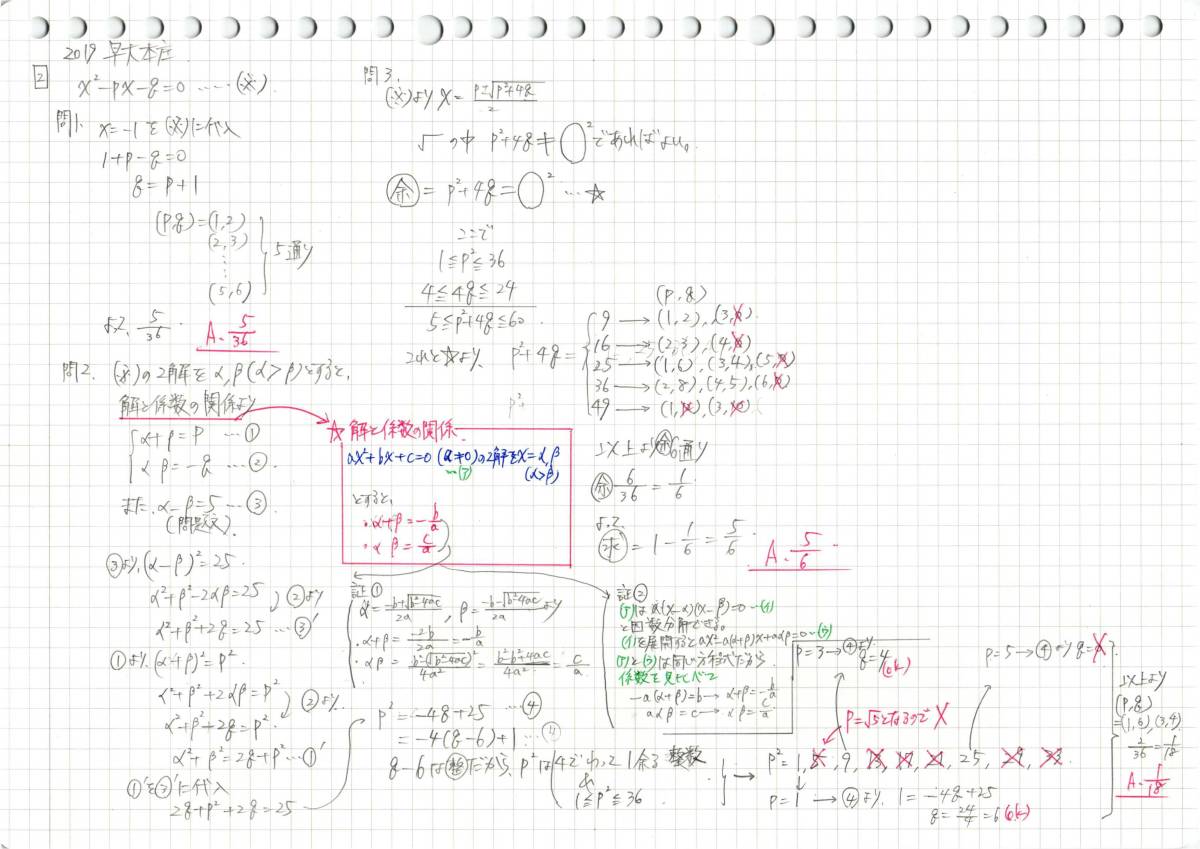 2019 早大本庄
2
x²-px-q=0 …… (※)
問1. x=-1を(※)に代入
1+p-q=0
q=p+1
(p,q)=(1,2)
(2,3)
⋮
(5,6)
5通り
よって, 5/36
A. 5/36
問2. (※)の2解をα,β(α>β)とすると,
解と係数の関係より
α+β=p …①
αβ=-q …②
また, α-β=5 …③
(問題文)
③より,(α-β)²=25
α²+β²-2αβ=25
②より
α²+β²+2q=25 …③'
①より,(α+β)²=p²
α²+β²+2αβ=p²
②より
α²+β²-2q=p²
α²+β²=2q+p² …①'
①'を③'に代入
2q+p²+2q=25
☆ 解と係数の関係
ax²+bx+c=0 (a≠0)の2解をx=α,β
…(ア)
(α>β)
とすると,
・α+β=-b/a
・αβ=c/a
証①
α=(-b+√(b²-4ac))/2a, β=(-b-√(b²-4ac))/2aより
・α+β=-2b/2a=-b/a
・αβ=(b²-(√(b²-4ac))²)/4a²=(b²-b²+4ac)/4a²=c/a
p²=-4q+25 …④
=-4(q-6)+1 …④
q-6は整だから, p²は4でわって1余る整数
&
1≦p²≦36
証②
(ア)は a(x-α)(x-β)=0 …(イ)
と因数分解できる。
(イ)を展開するとax²-a(α+β)x+aαβ=0 …(ウ)
(ア)と(ウ)は同じ方程式だから
係数を見比べて
-a(α+β)=b → α+β=-b/a
aαβ=c → αβ=c/a
p=3→④より
q=4
(ok)
p=5→④よりq=0
p=√5となるので×
p²=1, 5, 9, 13, 17, 21, 25, 29, 33
p=1 → ④より, 1=-4q+25
q=24/4=6(ok)
以上より
(p,q)
=(1,6),(3,4)
2/36=1/18
A. 1/18
問3.
(※)より x=(p±√(p²+4q))/2
√の中 p²+4q≠○²であればよい。
余=p²+4q=○² …☆
ここで
1≦p²≦36
4≦4q≦24
5≦p²+4q≦60
これと☆より, p²+4q=
(p,q)
9→(1,2),(3,0)
16→(2,3),(4,0)
25→(1,6),(3,4),(5,0)
36→(2,8),(4,5),(6,0)
49→(1,12),(3,10)
p²+
以上より余6通り
余 6/36=1/6
よって
求=1-1/6=5/6
A. 5/6